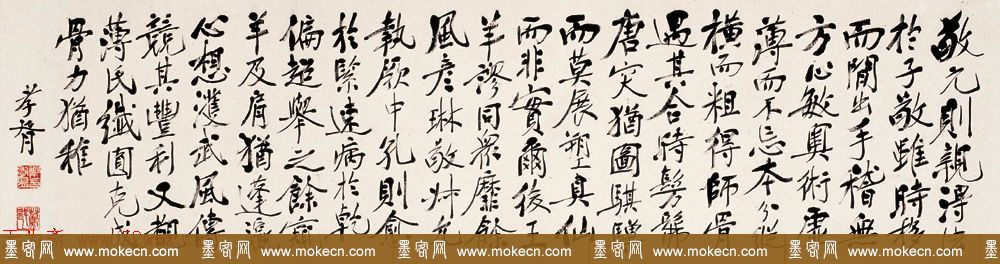 敬元則親得法
於子敬雖時移
而間出手稽無
方心敏奧術
薄而不忘本分縱
橫而粗得師骨
過其合時髣髴
唐突猶圖騏驥
而莫展塑真仙
而非實爾後王
羊謬同眾靡餘
風彥琳敬叔
執欣中孔則愈
於緊速病於乾
偏超舉之餘
羊及肩猶蓬瀛
心想灌武風偉
競其豐利又都
薄民纖圓克
骨力猶稚
孝胥
墨客网 www.mokecn.com 墨客网 www.mokecn.com 墨客网 www.mokecn.com 墨客网 www.mokecn.com 墨客网 www.mokecn.com